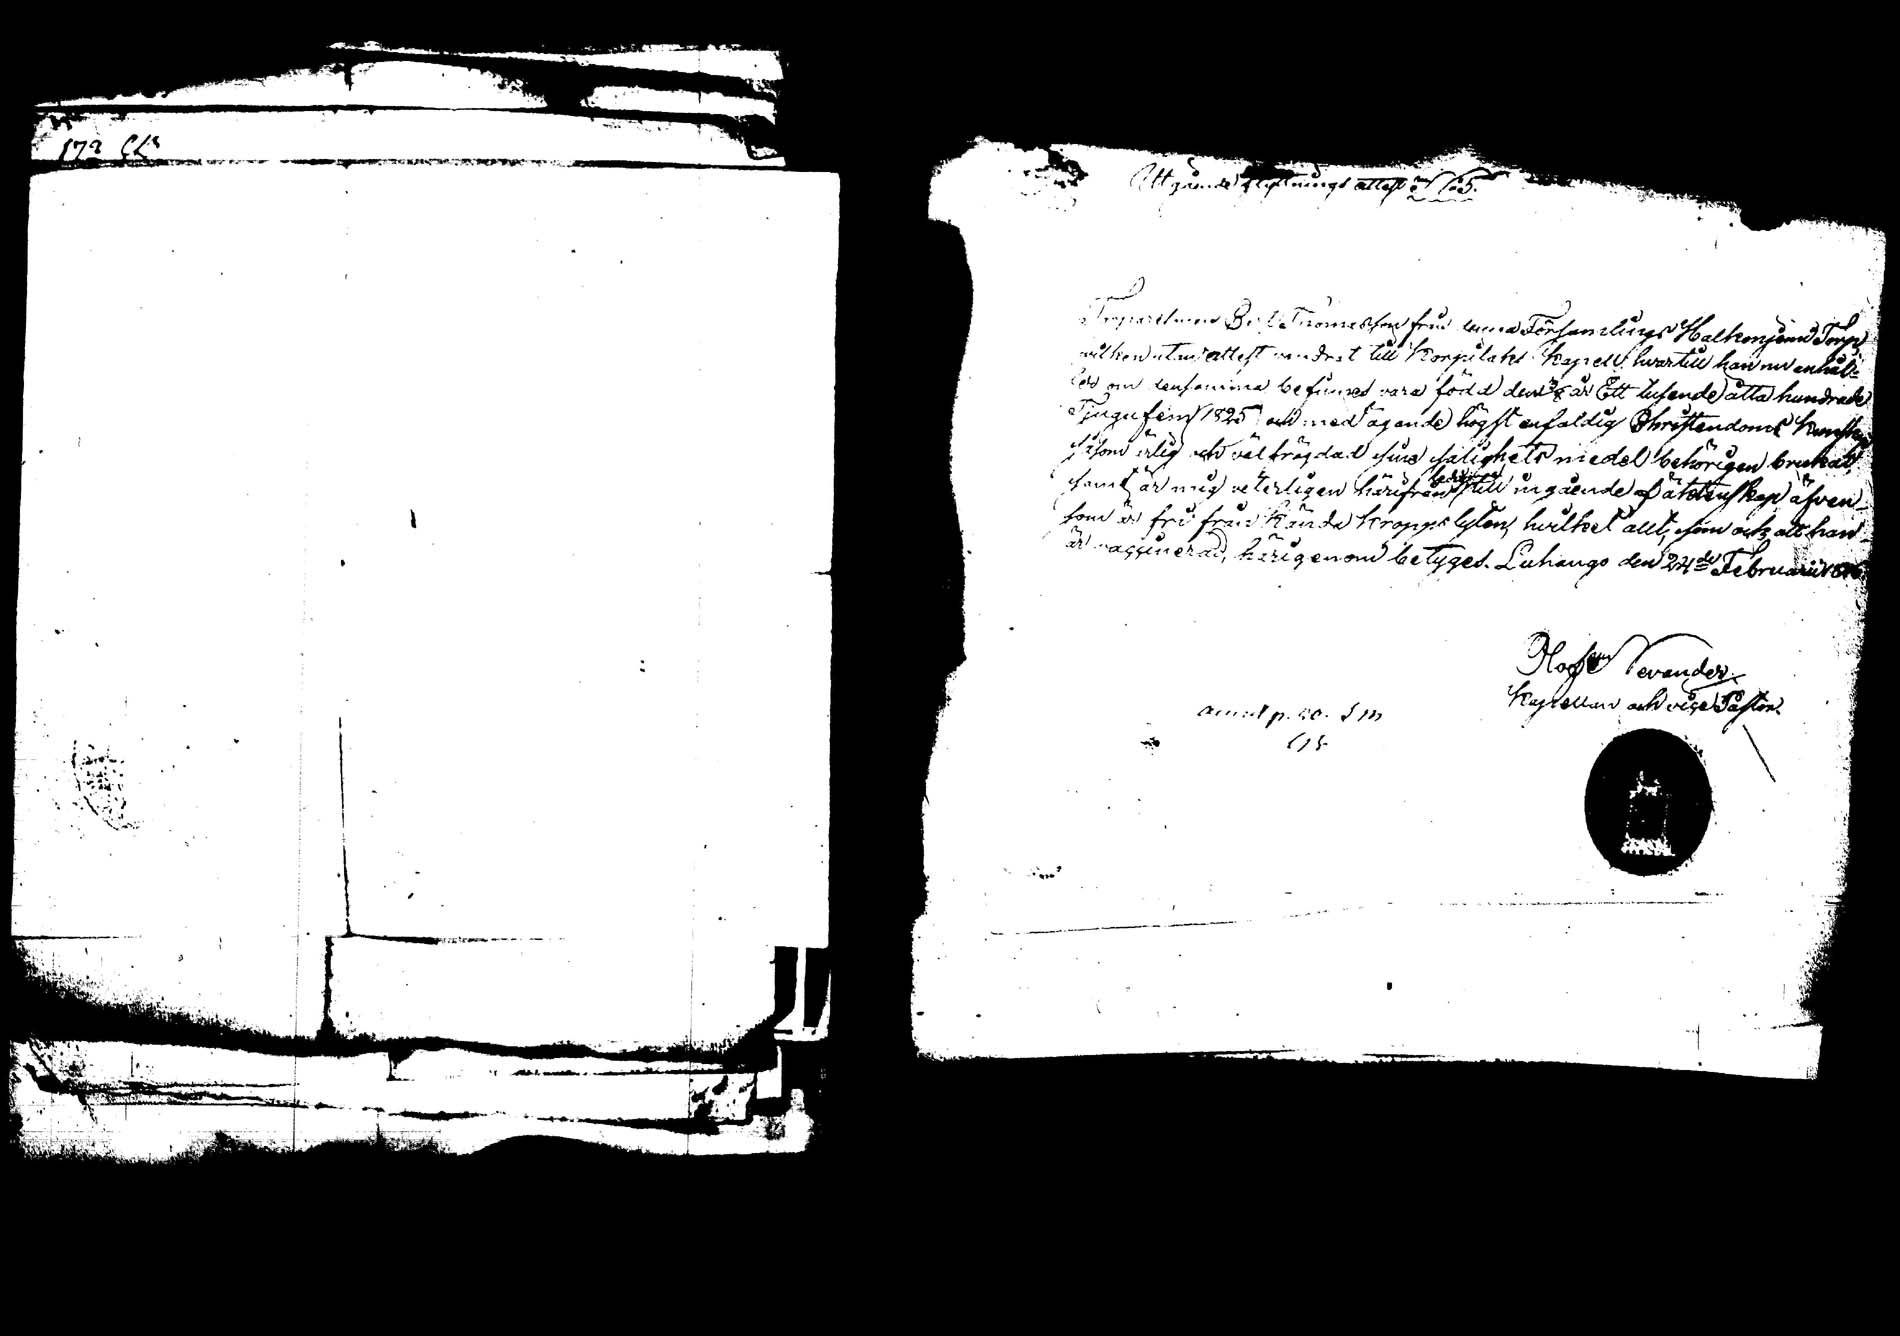 Utgående flyttnings attest N:o 5.
Thomasson från denna Församlings Halkonjemi Torp
utan attest vandrat till Korpilaks Kapell hvartill han nu anhål-
om densamma befunnes vara född den år Ett tusende åtta hundrade
Tjugufem 1825 och med ägande högst enfaldig Christendoms Kunskap
såsom ärlig och välfrägdad sine salighets medel behörigen brukat
samt är mig veterligen härifrån ledig till ingående af äktenskap äfven-
som är fri från kända kropps lyten, hvilket allt, som ock att han
är vaccinerad, härigenom betyges. Luhango den 24de Februarii
Nevander
Kapellan och vice Pastor.